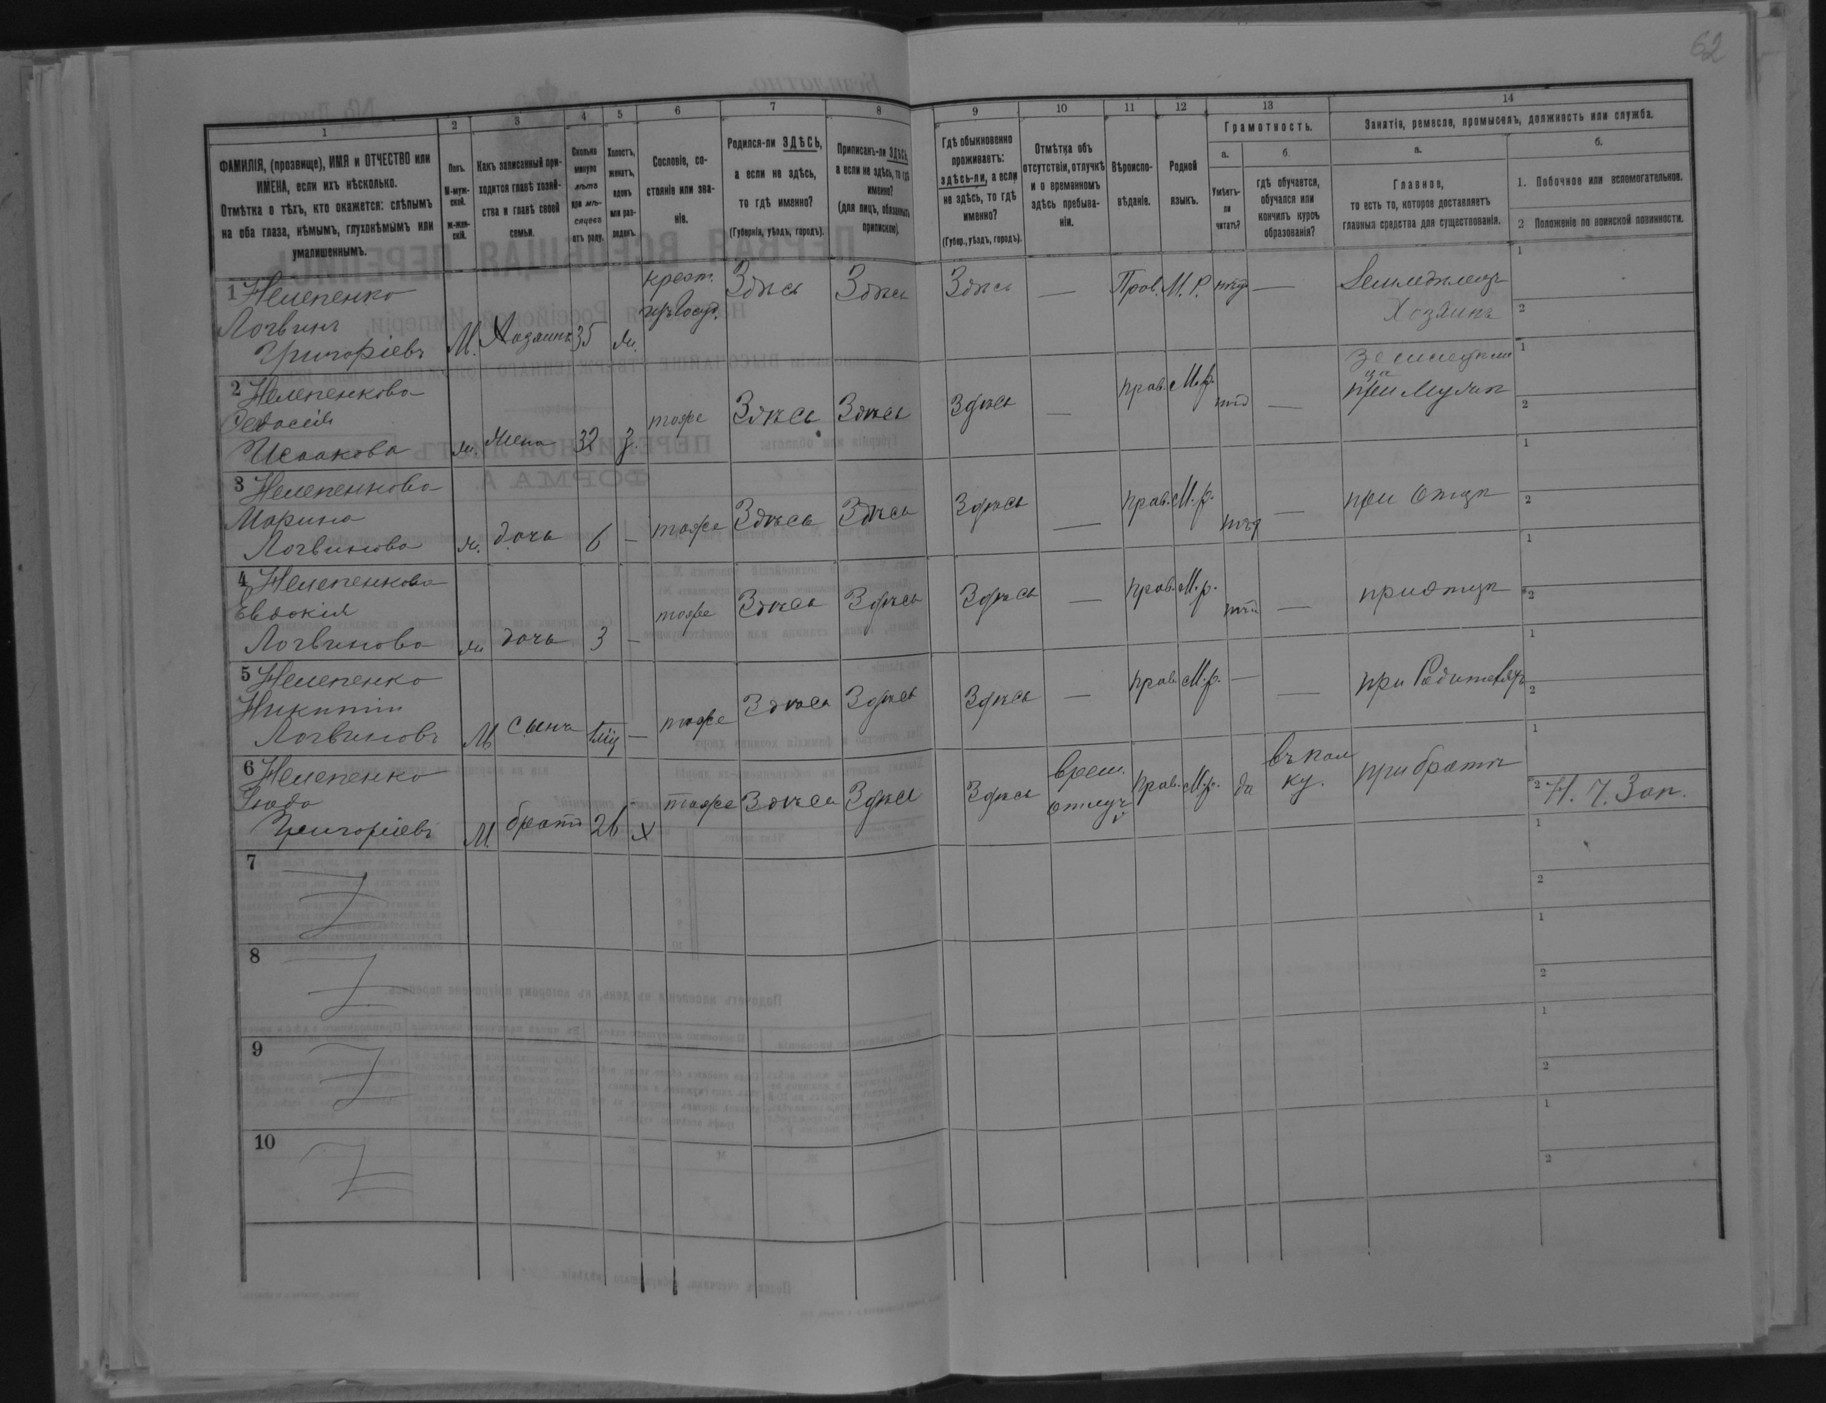 62
1
2
3
4
5
6
7
8
9
10
11
12
13
14
ФАМИЛІЯ, (прозвище), ИМЯ и ОТЧЕСТВО или
ИМЕНА, если ихъ нѣсколько.
Отмѣтка о тѣхъ, кто окажется: слѣпымъ
на оба глаза, нѣмымъ, глухонѣмымъ или
умалишеннымъ.
Полъ.
М-муж-
ской.
Ж-жен-
скій.
Какъ записанный при-
ходится главѣ хозяй-
ства и главѣ своей
семьи.
Сколько
минуло
лѣтъ
или мѣ-
сяцевъ
отъ роду.
Холостъ,
женатъ,
вдовъ
или раз-
веденъ.
Сословіе, со-
стояніе или зва-
ніе.
Родился-ли ЗДѢСЬ,
а если не здѣсь,
то гдѣ именно?
(Губернія, уѣздъ, городъ).
Приписанъ-ли ЗДѢСЬ,
а если не здѣсь, то гдѣ
именно?
(для лицъ, обязанныхъ
припискою).
Гдѣ обыкновенно
проживаетъ:
здѣсь-ли, а если
не здѣсь, то гдѣ
именно?
(Губер., уѣздъ, городъ).
Отмѣтка объ
отсутствіи, отлучкѣ
и о временномъ
здѣсь пребыва-
ніи.
Вѣроиспо-
вѣданіе.
Родной
языкъ.
Грамотность.
а.
Умѣетъ-
ли
читать?
б.
гдѣ обучается,
обучался или
кончилъ курсъ
образованія?
Занятіе, ремесло, промыселъ, должность или служба.
а.
Главное,
то есть то, которое доставляетъ
главныя средства для существованія.
б.
1. Побочное или вспомогательное.
2 Положеніе по воинской повинности.
1 Нелепенко
Логвинъ
Григоріевъ
М. Хозяинъ 35 ж.
крест.
изъ госуд.
Здѣсь Здѣсь Здѣсь — Прав. М. Р. нѣт —
Земледѣлецъ
Хозяинъ
1
2
2 Нелепенкова
Феодосія
Исаакова
ж. жена 32 з. тоже Здѣсь Здѣсь Здѣсь — прав. М.р. нѣт —
при мужѣ
1
2
3 Нелепенкова
Марина
Логвинова
ж. дочь 6 — тоже Здѣсь Здѣсь Здѣсь — прав. М.р. нѣт — при отцѣ
1
2
4 Нелепенкова
Евдокія
Логвинова
ж. дочь 3 — тоже Здѣсь Здѣсь Здѣсь — прав. М.р. нѣт — при отцѣ
1
2
5 Нелепенко
Никита
Логвиновъ
М сынъ — тоже Здѣсь Здѣсь Здѣсь — прав. М.р. — — при Родителяхъ
1
2
6 Нелепенко
Григоріевъ
М. братъ 26 х тоже Здѣсь Здѣсь Здѣсь
врем.
отлуч.
прав. М.р. да
въ пол
ку.
при братѣ
1
2 Н. Ч. Зап.
7
1
2
8
1
2
9
1
2
10
1
2